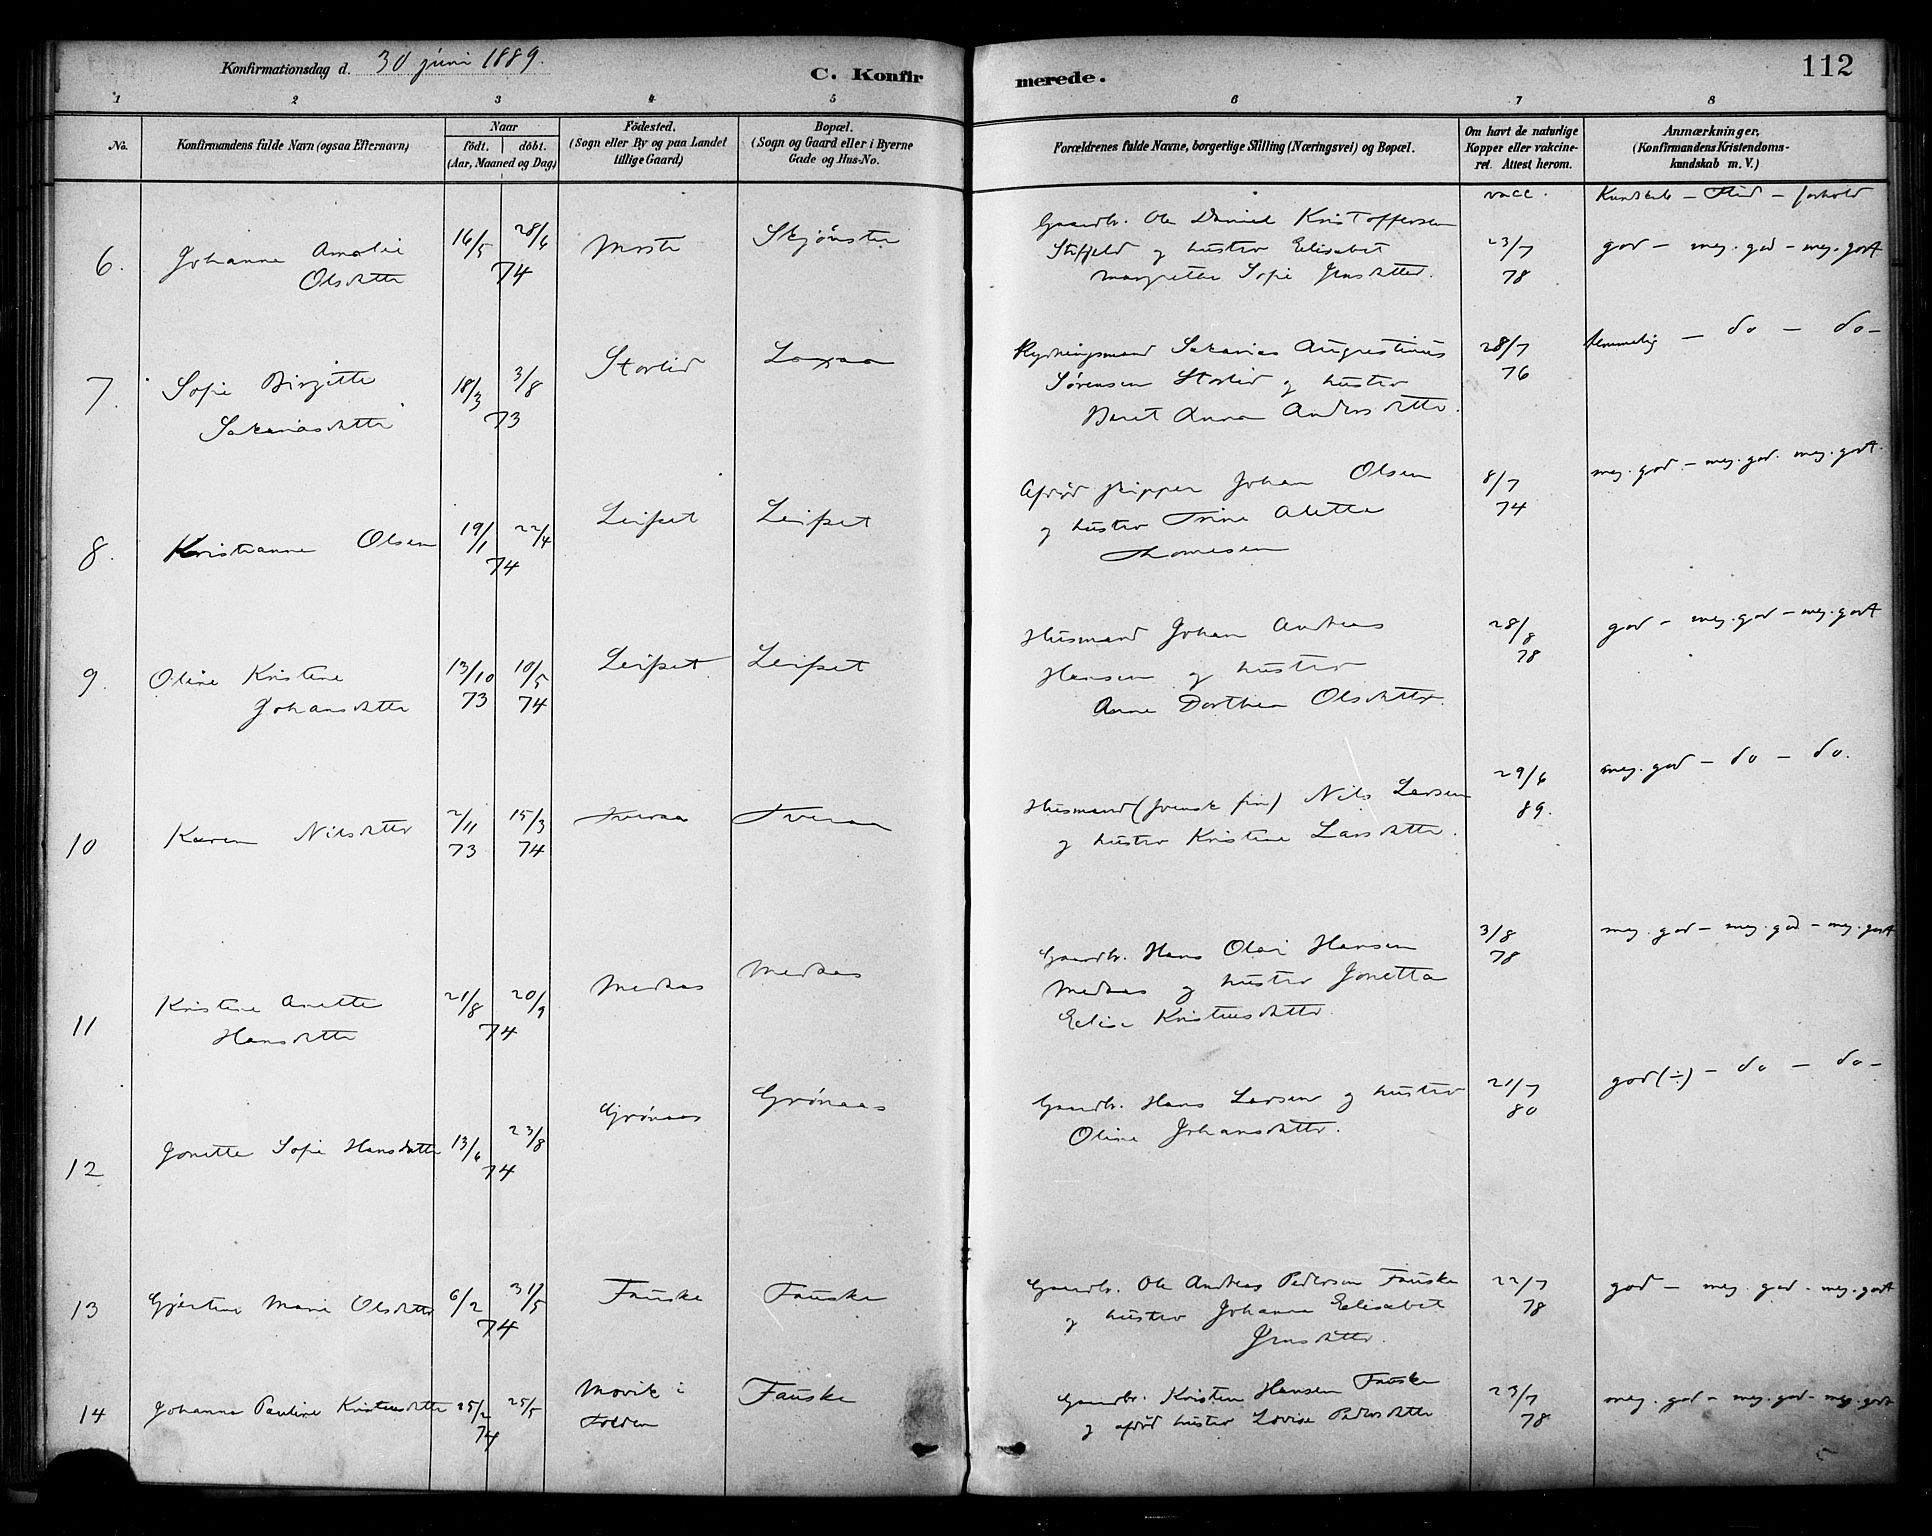 Konfirmationsdag d. 30 juni 1889.
C. Konfirmerede.
112
1 2 3 4 5 6 7 8
No.
Konfirmandens fulde Navn (ogsaa Efternavn)
Naar
födt. döbt.
(Aar, Maaned og Dag)
Födested.
(Sogn eller By og paa Landet
tillige Gaard)
Bopæl.
(Sogn og Gaard eller i Byerne
Gade og Hus-No.
Forældrenes fulde Navne, borgerlige Stilling (Næringsvei) og Bopæl.
Om havt de naturlige
Kopper eller vakcine-
ret. Attest herom.
Anmærkninger,
(Konfirmandens Kristendoms-
kundskab m. V.)
vacc. Kundskab – Flid – forhold
6. Johanne Amalie
Olsdatter
16/5 28/6
74
Moste
Skjønstu
Gaardbr. Ole Daniel Kristoffersen
og hustro Elisabet
Margrethe Sofie Jensdatter.
23/7
78
god – meg. god – meg. godt
7. Sofie Birgitte
Sakariasdatter
18/3 3/8
73
Storlid
Laxaa
Rydningsmand Sakarias Augustinus
Sørensen Storlid og hustro
Beret Anna Andersdatter.
28/7
76
temmelig – do – do –
8. Kristianne Olsen
19/1 22/4
74
Leifset
Leifset
Afdød skipper Johan Olsen
og hustro Trine Aletta
Thomesen
8/7
74
meg. god – meg. god. meg. godt.
9. Oline Kristine
Johansdatter
13/10 10/5
73 74
Leifset
Leifset
Husmand Johan Andreas
Hansen og hustro
Anne Dorthea Olsdatter.
28/8
78
god – meg. god – meg. godt
10 Karen Nilsdatter
2/11 15/3
73 74
Tveraa
Tveraa
Husmand (svensk fin) Nils Larsen
og hustro Kristine Larsdatter.
29/6
89.
meg. god – do – do.
11 Kristine Anette
Hansdatter
21/8 20/9
74
Medaas
Medaas
Gaardbr. Hans Olai Hansen
Medaas og hustro Jonetta
Elise Kristensdatter.
3/8
78
meg. god – meg. god – meg. godt
12 Jonette Sofie Hansdatter
13/6 23/8
74
Grønaas
Grønaas
Gaardbr. Hans Larsen og hustro
Oline Johansdatter.
21/7
80
god (÷) – do – do –
13 Gjertine Marie Olsdatter
6/2 31/5
74
Fauske
Fauske
Gaardbr. Ole Andreas Pedersen Fauske
og hustro Johanna Elisabet
Jensdatter.
22/7
78
god – meg. god – meg. godt
14 Johanna Pauline Kristensdatter
25/2 25/5
74
Movik i
Folden
Fauske
Gaardbr. Kristen Hansen Fauske
og afdød hustro Lovise Pedersdatter
23/7
78
meg. god – meg. god – meg. godt